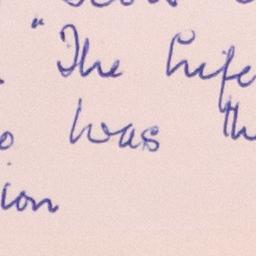 "The Life
was th
ion